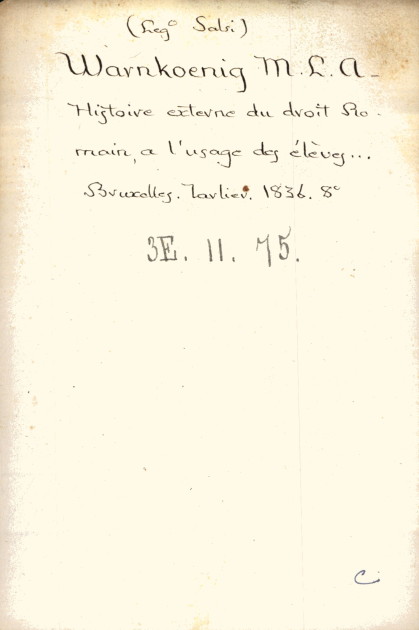 (Leg° Salvi)
Warnkoenig M. L. A.
Histoire externe du droit Ro-
main, a l'usage des élèves...
Bruxelles. Tarlier. 1836. 8°
3E. 11. 75.
C